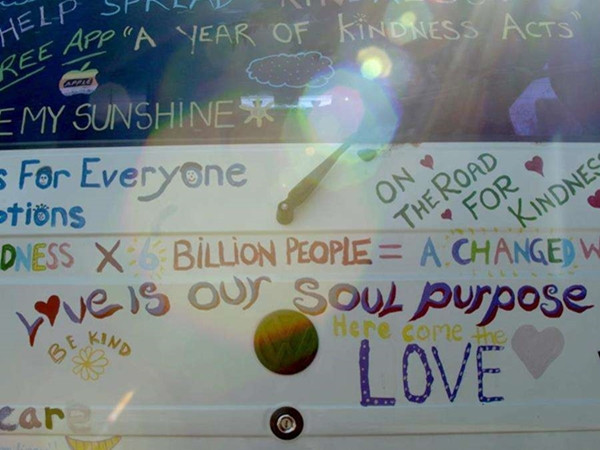 HELP SPREAD KINDNESS
FREE APP "A YEAR OF KINDNESS ACTS"
APPLE
E MY SUNSHINE
s For Everyone
otions
ON
THE ROAD
FOR
KINDNESS
DNESS X 6 BILLION PEOPLE = A CHANGED W
LOVE IS OUR SOUL PURPOSE
BE KIND
Here come the
LOVE
care